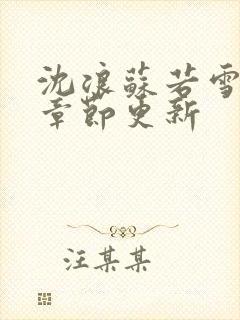 沈浪蘇若雪
章節更新
汪某某